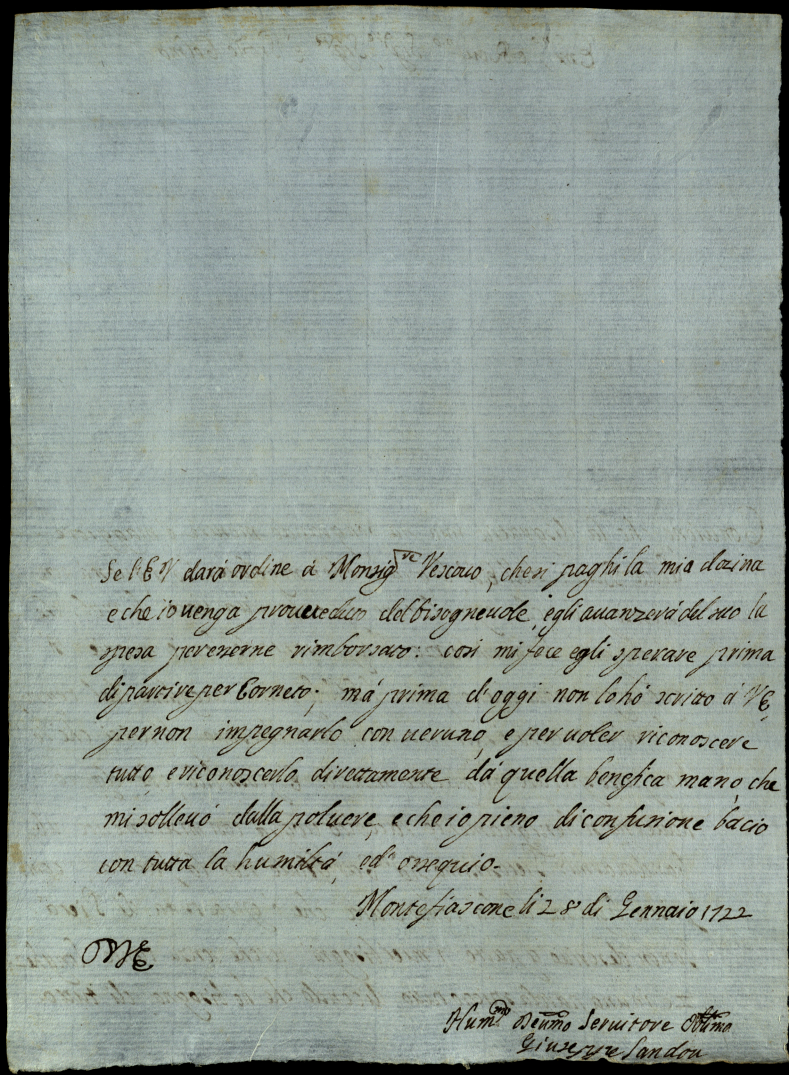 Se l'E V darà ordine à Monsig.re Vescovo, che si paghi la mia dozina
e che io venga proveduto del bisognevole, egli avanzerà del suo la
spesa per esserne rimborsato: così mi fece egli sperare prima
di partire per Corneto; mà prima d'oggi non lo hò scritto à VE,
per non impegnarlo con veruno, e per voler riconoscere
tutto, e riconoscerlo direttamente dà quella benefica mano, che
mi sollevò dalla polvere, e che io pieno di confusione bacio
con tutta la humiltà, ed ossequio.
Montefiascone li 28 di Gennaio 1722
Hum.mo Devmo Servitore Obbmo
Giuseppe